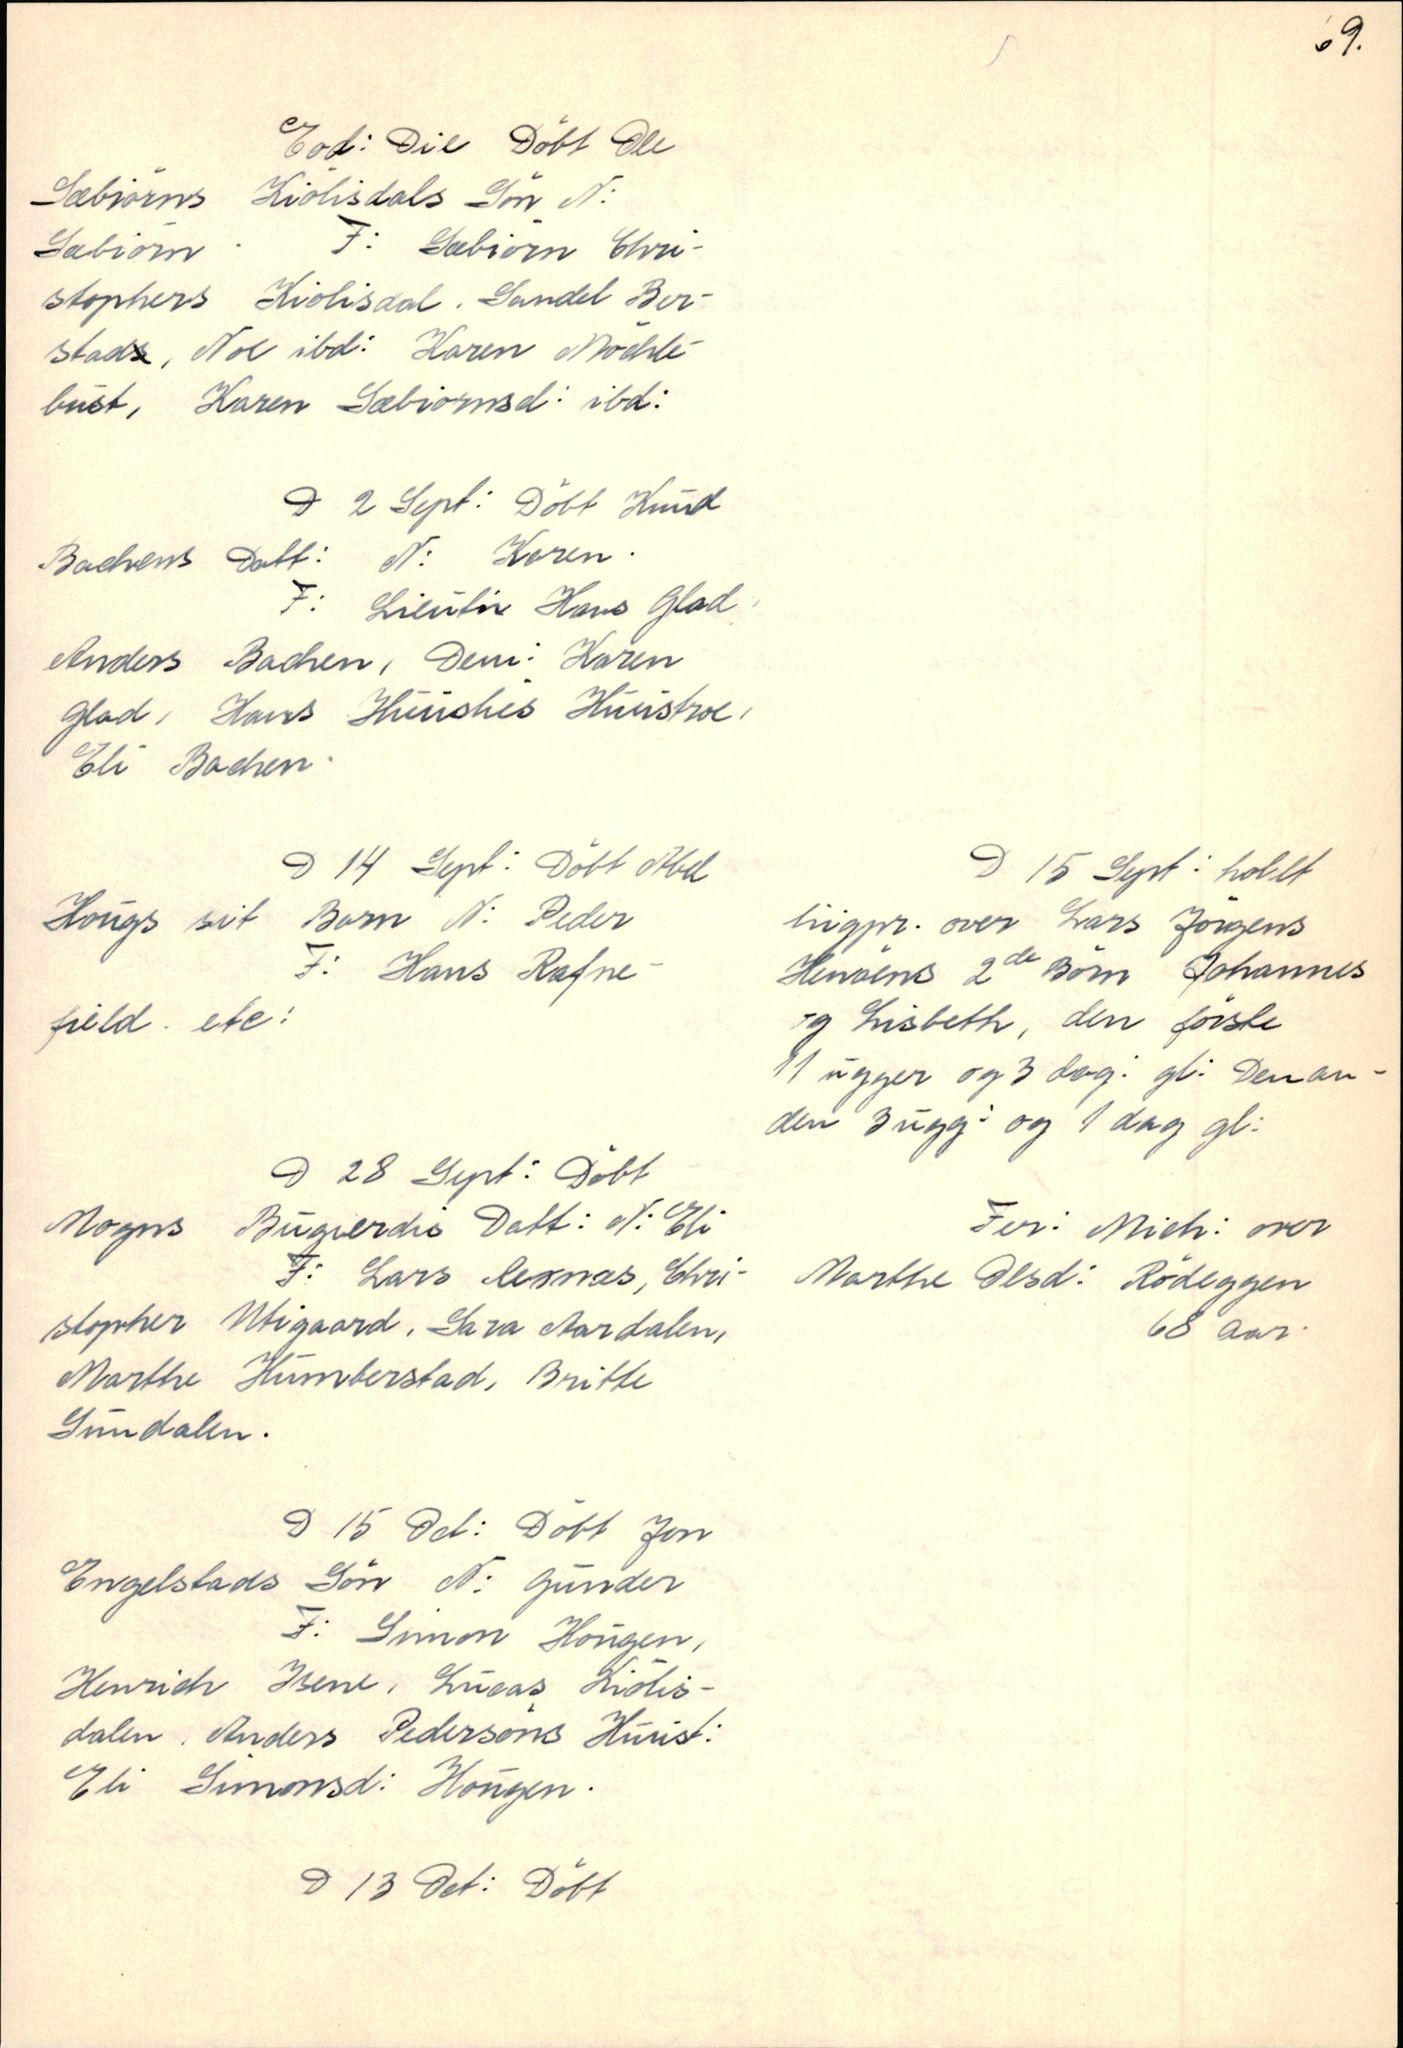 69.
Eod: Die Döbt Ole
Sæbiörns Kiölisdals Sön N:
Sæbiörn. F: Sæbiörn Chri-
stophers Kiölisdal. Sandel Ber-
stads, Noe ibd: Karen Möchle-
bust, Karen Sæbiornsd: ibd:
D 2 Sept: Döbt Knud
Bachens Datt: N: Karen.
F: Lieutn Hans Glad,
Anders Bachen, Demi: Karen
Glad, Hans Huushes Huustroe,
Eli Bachen.
D 14 Sept: Döbt Abel
Hougs sit Barn N: Peder
F: Hans Rafne-
field. etc:
D 28 Sept: Döbt
Mogns Bugierdis Datt: N: Eli
F: Lars Chri-
stopher Utigaard, Sara Aardalen,
Marthe Humberstad, Britte
Sundalen.
D 15 Oct: Döbt Jon
Engelstads Sön N: Gunder
F: Simon Hougen,
Henrich Isene, Lucas Kiölis-
dalen, Anders Pedersöns Huust:
Eli Simonsd: Hougen.
D 13 Oct: Döbt
D 15 Sept: holdt
liigpr. over Lars Jörgens
Henöens 2de Börn Johannes
og Lisbeth, den förste
11 ugger og 3 dag: gl: Den an-
den 3 ugg: og 1 dag gl:
Fer: Mich: over
Marthe Olsd: Rödeggen
68 aar.